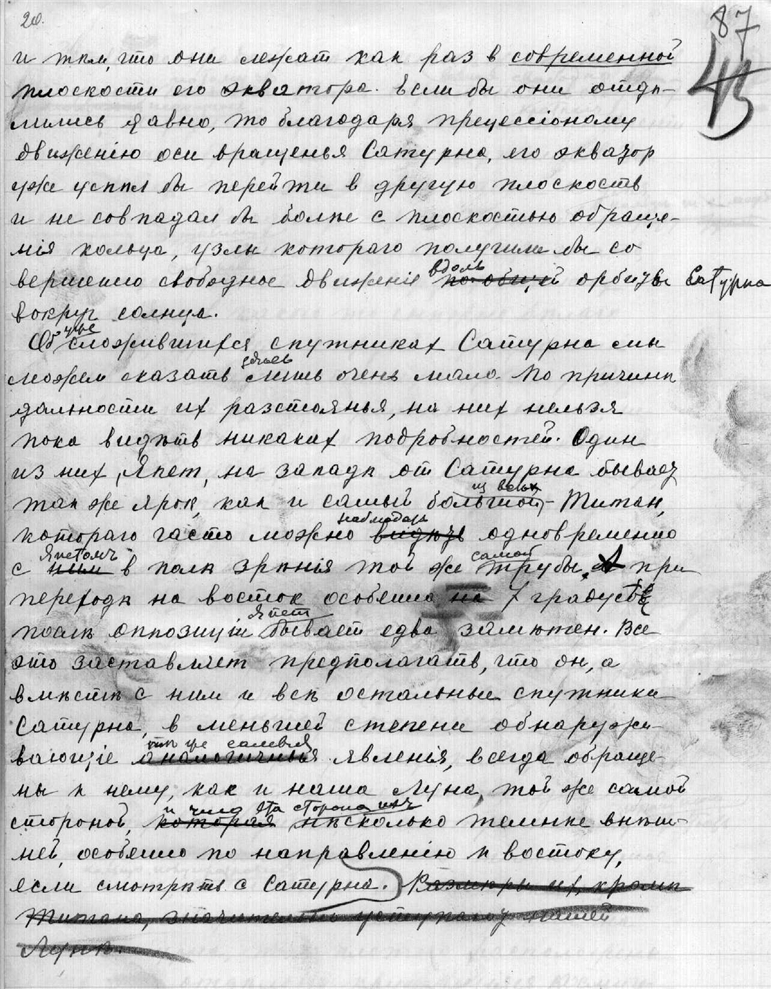 20.
87
43
и тѣм, что они лежат как раз в современной
плоскости его экватора. Если бы они отдѣ-
лились давно, то благодаря прецессіоному
движенію оси вращенья Сатурна, его экватор
уже успѣл бы перейти в другую плоскость
и не совпадал бы болѣе с плоскостью обраще-
нія кольца, узлы котораго получили бы со
вершенно свободное движеніе вдоль по общей орбиты Сатурна
вокруг солнца.
Об уже сложившихся спутниках Сатурна мы
можем сказать здѣсь лишь очень мало. По причинѣ
дальности их разстоянья, на них нельзя
пока видѣть никаких подробностей. Один
из них, Япет, на западѣ от Сатурна бывает
так же ярок, как и самый большой из всѣх – Титан,
котораго часто можно наблюдать видѣть одновременно
с Япетомъ ним в полѣ зрѣнія той же самой трубы. А при
переходѣ на восток особенно на 7 градусѣ
послѣ оппозиціи Япет бывает едва замѣтен. Все
это заставляет предполагать, что он, а
вмѣстѣ с ним и всѣ остальные спутники
Сатурна, в меньшей степени обнаружи-
вающіе тѣ же самыя аналогичныя явленія, всегда обраще-
ны к нему, как и наша Луна, той же самой
стороной, которая и что эта сторона их нѣсколько темнѣе внѣш-
ней, особенно по направленію к востоку,
если смотрѣть с Сатурна. Размѣры их, кромѣ
Титана, значительно уступают нашей
Лунѣ